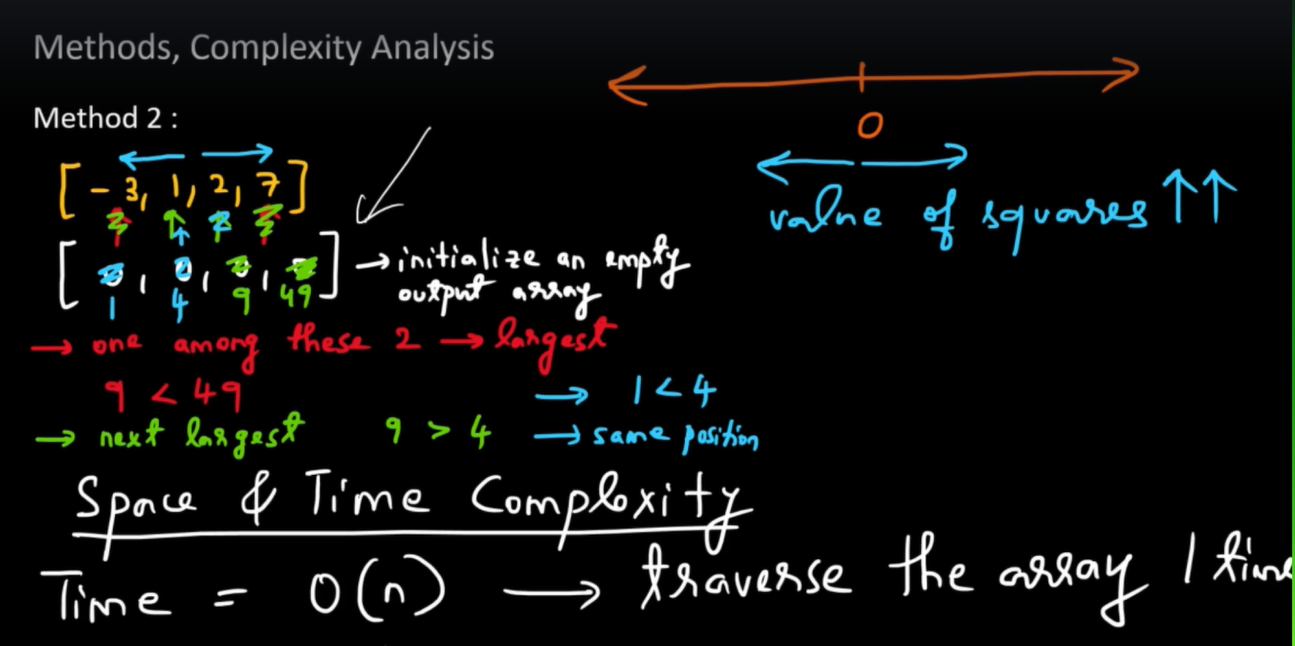 Methods, Complexity Analysis
0
Method 2 :
value of squares ↑↑
[ - 3, 1, 2, 7 ]
[ 0, 0, 0, 0 ] → initialize an empty
output array
1 4 9 49
→ one among these 2 → largest
9 < 49
→ 1 < 4
→ next largest 9 > 4 → same position
Space & Time Complexity
Time = O(n) → traverse the array 1 time